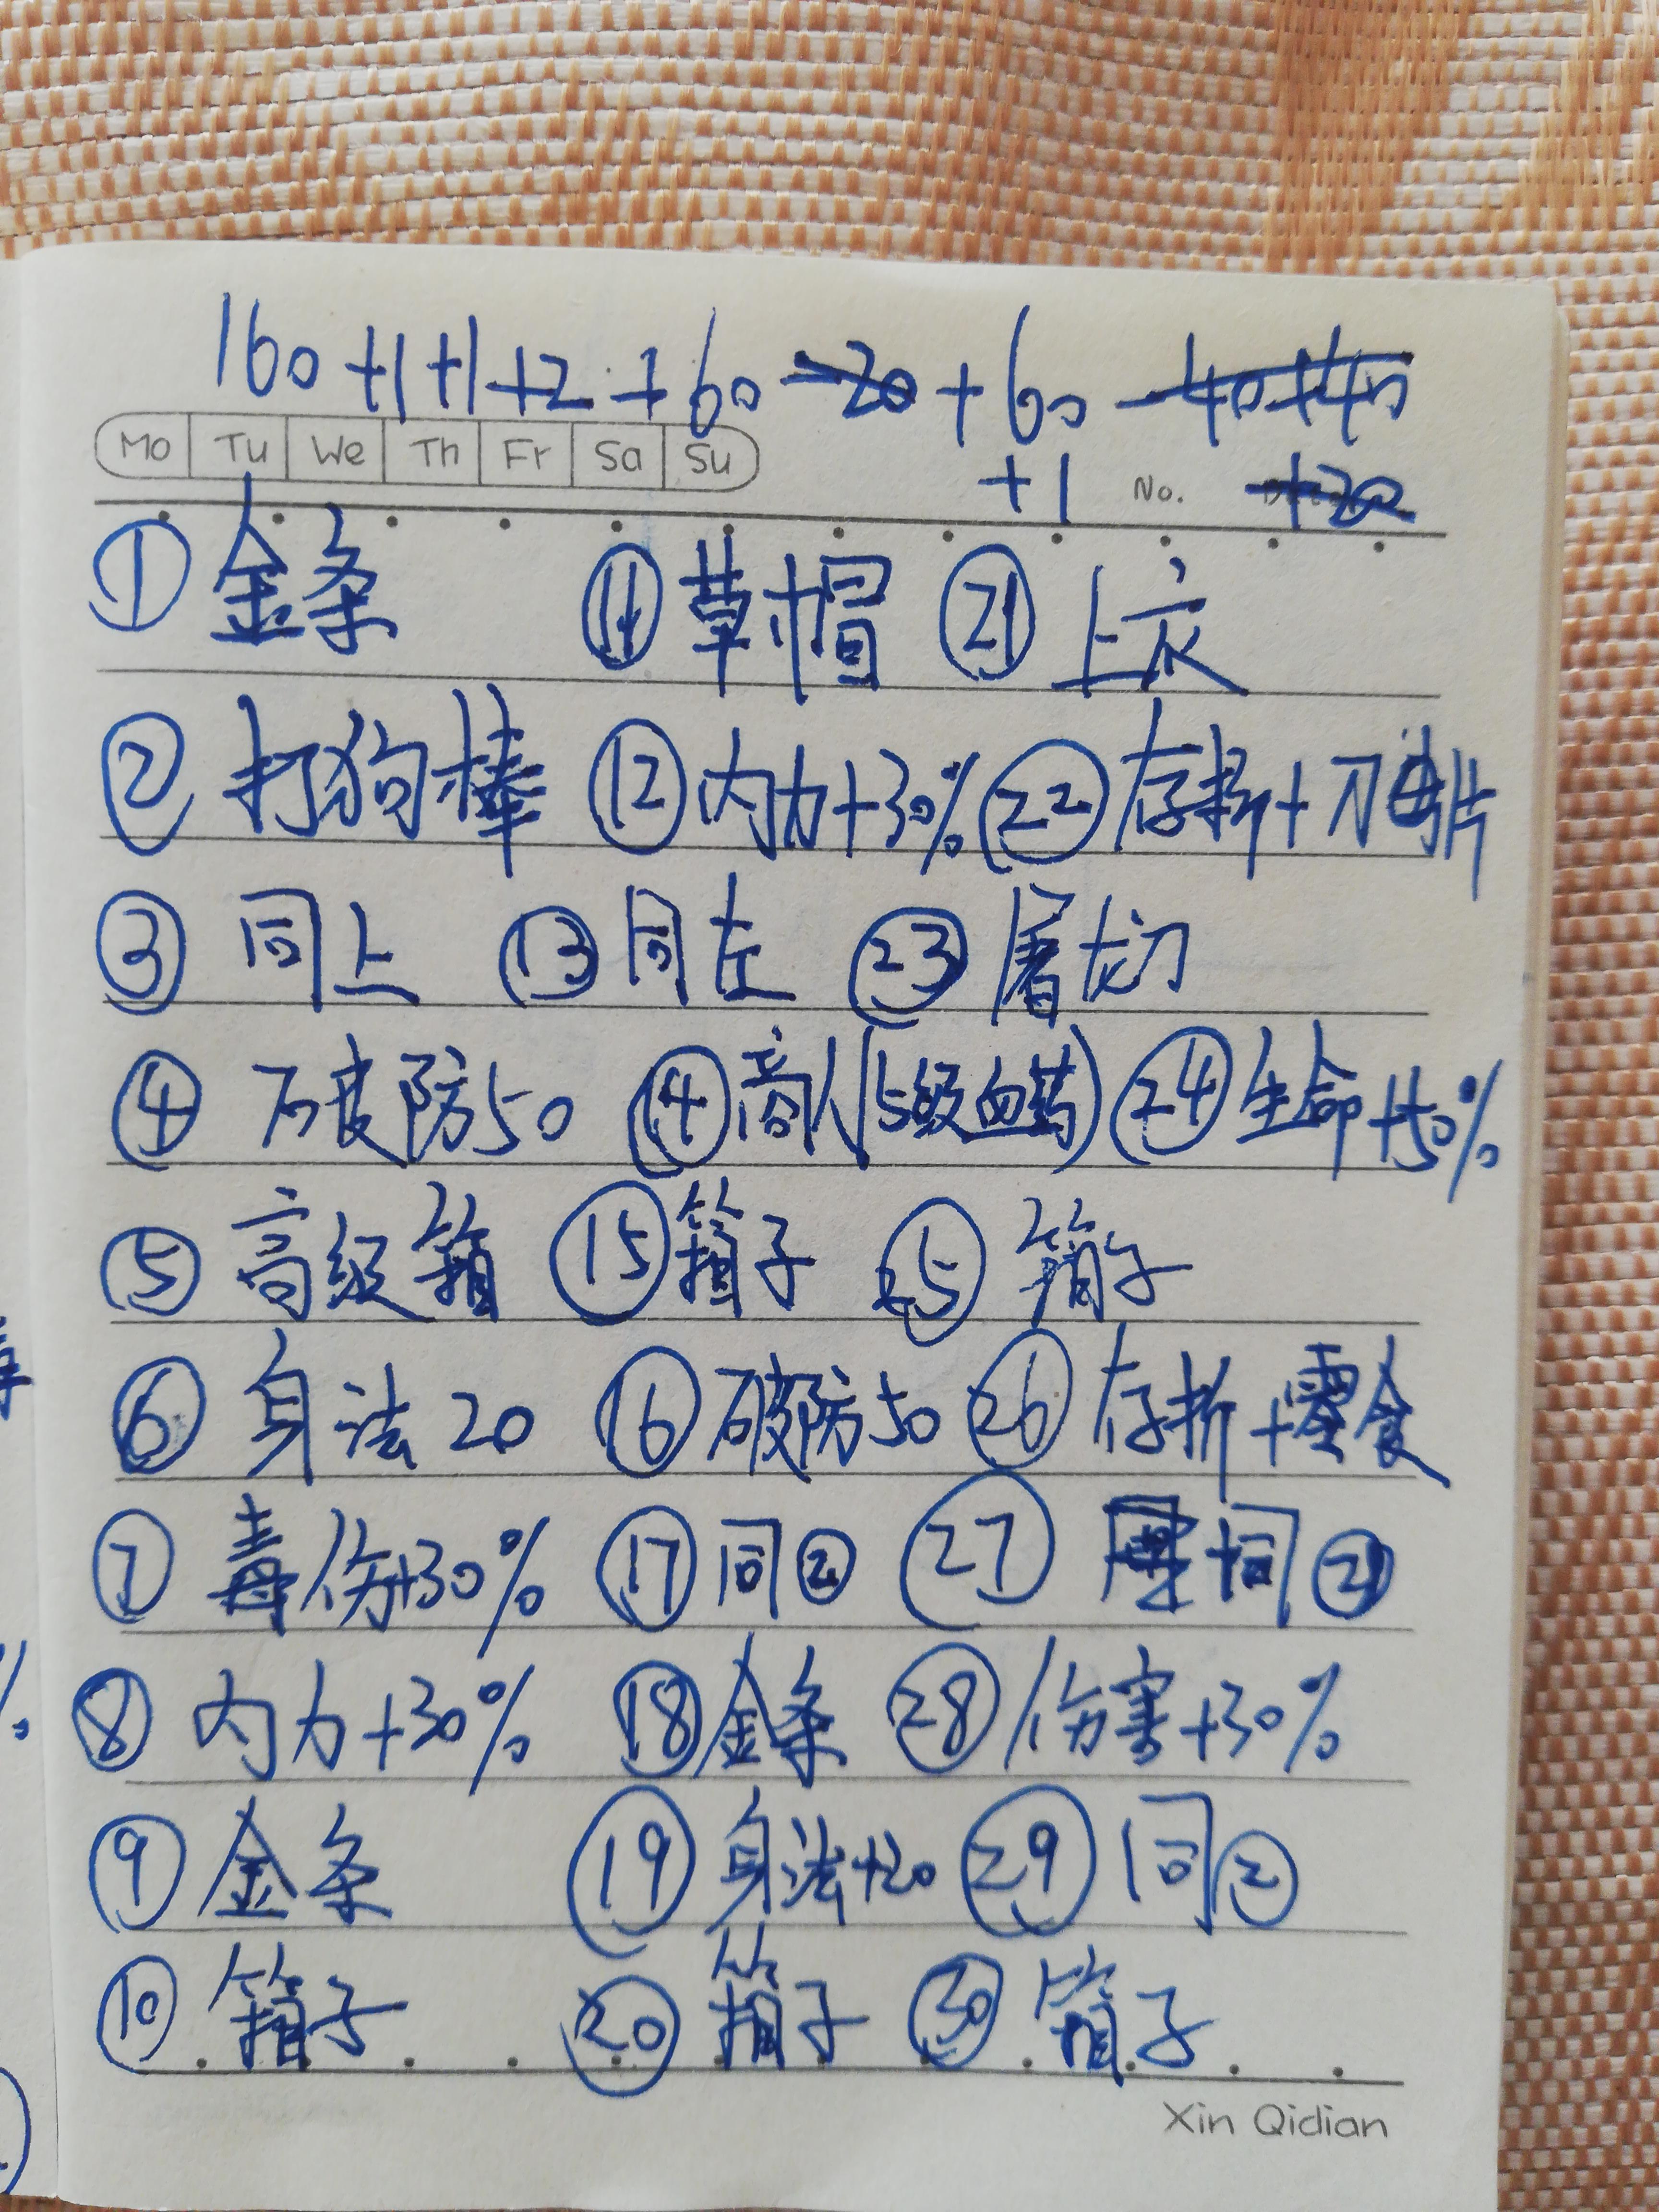 160+1+1+2+60-20+60-40+40
Mo Tu We Th Fr Sa Su +1 No. +20
① 金条 ⑪ 草帽 ㉑ 上衣
② 打狗棒 ⑫ 内力+30% ㉒ 存折+刀片
③ 同上 ⑬ 同左 ㉓ 屠龙刀
④ 破防50 ⑭ 商人(5级血药) ㉔ 生命+50%
⑤ 高级箱 ⑮ 箱子 ㉕ 箱子
⑥ 身法20 ⑯ 破防50 ㉖ 存折+零食
⑦ 毒伤+30% ⑰ 同② ㉗ 同㉑
⑧ 内力+30% ⑱ 金条 ㉘ 伤害+30%
⑨ 金条 ⑲ 身法+20 ㉙ 同②
⑩ 箱子 ⑳ 箱子 ㉚ 箱子
Xin Qidian